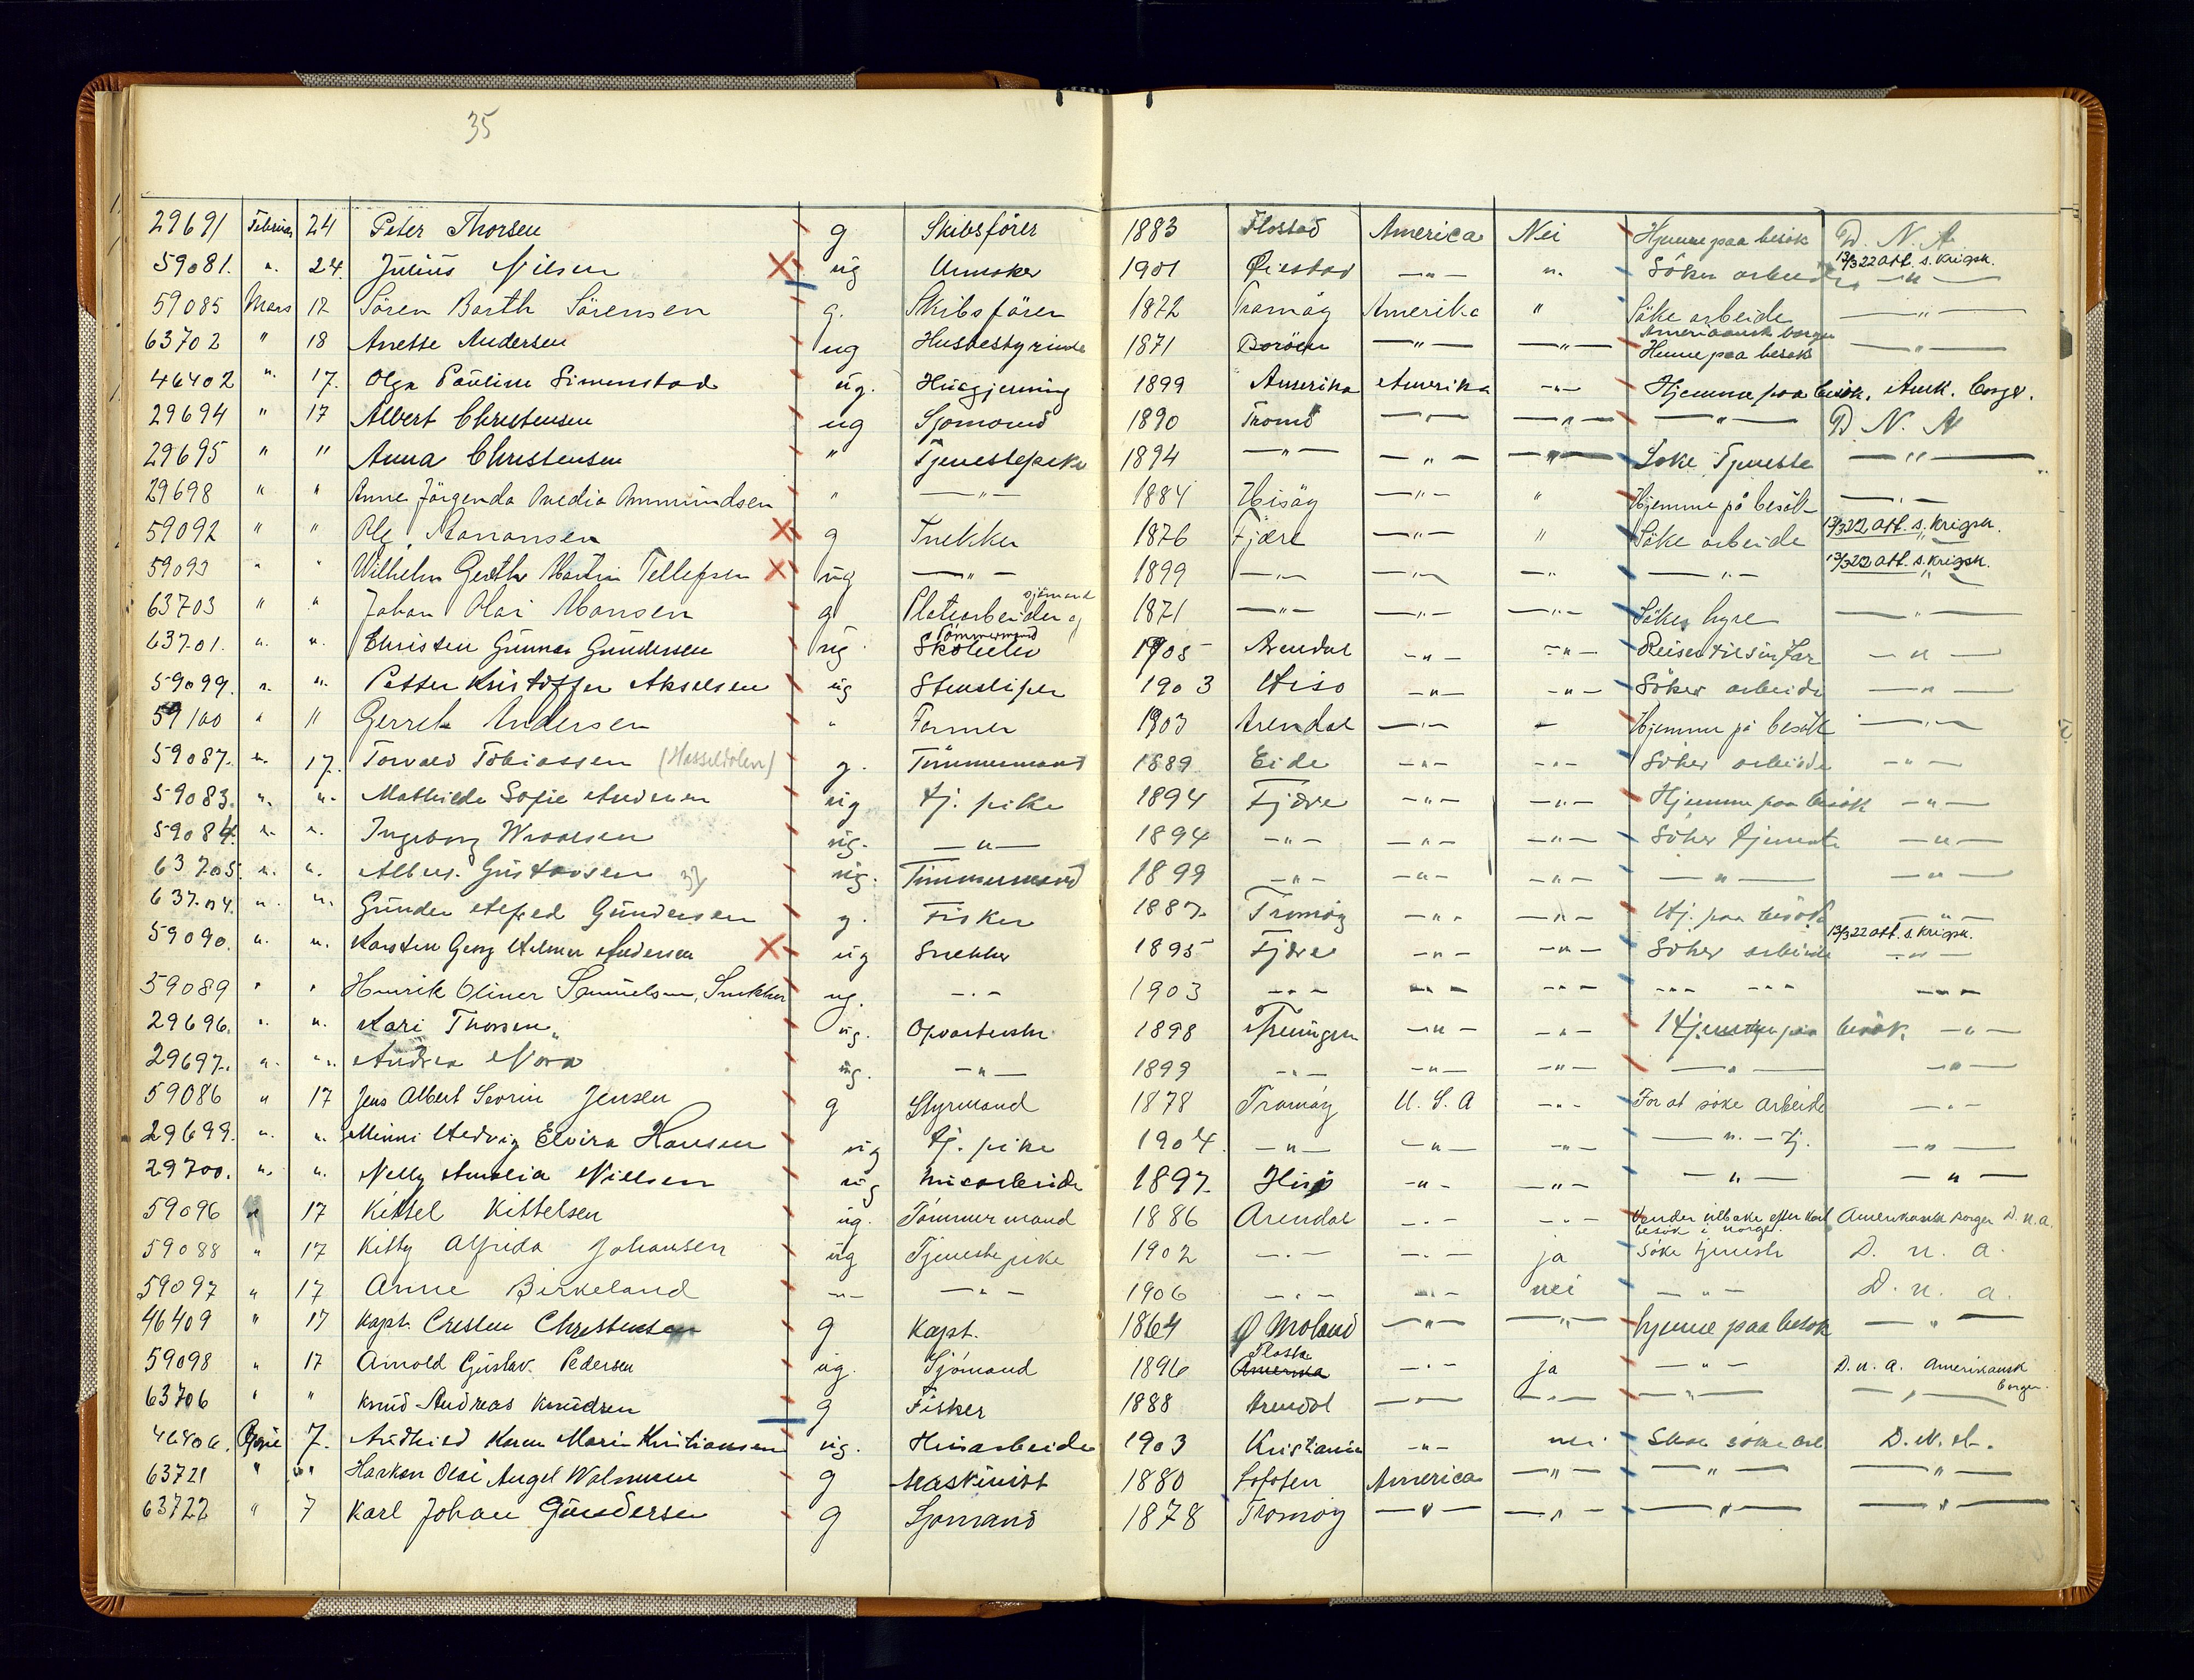 35
29691 Februar 24 Peter Thorsen g Skibsfører 1883 Flostad America Nei Hjemme paa besøk D. N. A.
59081. " 24. Julius Nilsen ug 1901 Øiestad —"— ". Söker arbeide 13/3 22 att. s. krigsk. —"—
59085 Mars 17 Sören Barth Sörensen g. Skibsfören 1872 Tromöy Amerika " Söke arbeide —"—
63702 " 18 Anette Andersen ug Husbestyrinde 1871 Boröen —"— —"— Amerikansk borger Hjemme paa besøk —"—
46402 ". 17. Olga Pauline Simonstad ug. Husgjerning 1899 Amerika Amerika —"— Hjemme paa besøk. Amk. borger.
29694 " 17 Albert Christensen ug Sjömand 1890 Tromö —"— —"— —"— D N. A
29695 " " Anna Christensen " Tjenestepike 1894 —"— —"— —"— Söke Tjeneste —"—
29698 " " Anne Jörgenda Amundsen " —"— 1884 Hisöy —"— " Hjemme på besök —"—
59092 " " Ole g Snekker 1876 Fjære —"— " Söke arbeide 13/3 22 att. s. krigsk.
59093 " " Wilhelm Martin Tellefsen ug —"— 1899 —"— —"— —"— —"— 13/3 22 att. s. krigsk.
63703 " " Johan Olai Hansen g Platearbeider og sjömand 1871 —"— —"— —"— Söker hyre —"—
63701. ". ". Christen Gunnar Gundersen ug. Tömmermand Skoleelev 1905 Arendal —"— —"— Reiser til sin far —"—
59099. ". ". Petter Kristoffer Akselsen ug Stensliper 1903 Hisö —"— —"— Söker arbeide —"—
59100 " " Gerrek Andersen " Farmer 1903 Arendal —"— — Hjemme på besök —"—
59087. ". 17. Torvald Tobiassen (Hasseldalen) g. Tömmermand 1889 Eide —"— —"— Söker arbeide —"—
59083. ". ". Mathilde Sofie Andersen ug tj. pike 1894 Fjære —"— —"— Hjemme paa besök —"—
59084. ". ". Ingeborg ug. —"— 1894 —"— —"— —"— Söker tjeneste —"—
63705. ". ". Albert Gustavsen ug. Tömmermand 1899 —"— —"— —"— —"— —"—
63704. ". ". Gunder Alfred Gundersen g. Fisker 1887 Tromöy —"— —"— Hj. paa besök —"—
59090. ". ". Karsten Georg Helmer Andersen ug Snekker 1895 Fjære —"— —"— Söker arbeide 13/3 22 att. s. krigsk. —"—
59089 " " Henrik Oliver Samuelsen, Snekker ug. —"— 1903 —"— —"— —"— —"— —"— —"—
29696. ". ". Kari Thorsen ug. Opvarterske 1898 —"— —"— Hjemme paa besök —"—
29697. ". ". Andrea ug. —"— 1899 —"— —"— —"— —"— —"—
59086 " 17 Jens Albert Severin Jensen g Styrmand 1878 Tromöy U. S. A —"— For at söke arbeide —"—
29699. ". ". Minni Hedvig Elvira Hansen ug tj. pike 1904. —"— —"— —"— —"— tj. —"—
29700. ". ". Nelly Amalia Nielsen ug Husarbeide 1897. Hisö —"— —"— —"— —"—
59096 " 17 Kittel Kittelsen ug. Tömmermand 1886 Arendal —"— —"— Vender tilbake efter kort besök i Norge. Amerikansk borger D. N. A.
59088 " 17 Kitty Alfrida Johansen ug Tjenestepike 1902 —"— —"— ja Söke tjeneste D. n. a.
59097 " 17 Anne Birkeland —"— —"— 1906 —"— —"— nei —"— D. n. a.
46409 " 17 Kapt. Cresten Christensen g Kapt. 1864 Ø Moland —"— —"— hjemme paa besøk —"—
59098 " 17 Arnold Gustav Pedersen ug. Sjömand 1896 Flosta Amerika —"— ja —"— D. n. a. Amerikansk borger.
63706 " " Knud Andreas Knudsen g Fisker 1888 Arendal —"— —"— —"— —"—
46406. 7. Audhild Karen Marie Kristiansen ug. Husarbeide 1903 Kristiania —"— nei. Skal söke arb D. N. A.
63721 " " Haakon Olai Angel g Maskinist 1880 Lofoten America —"— —"— —"—
63722 " 7 Karl Johan Gundersen g Sjömand 1878 Tromöy —"— —"— —"— —"—